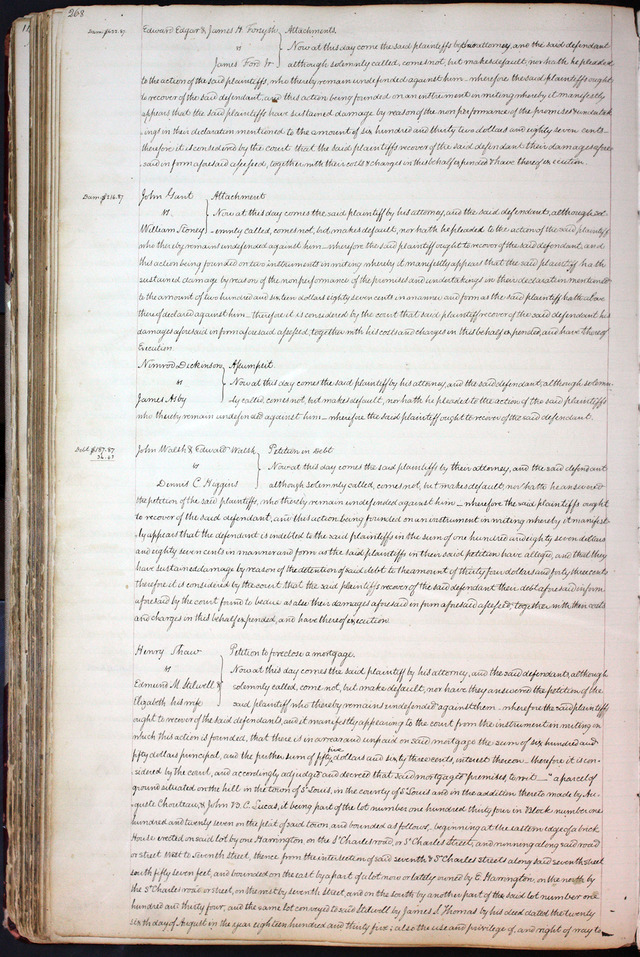 268
Dam. $632.87
Edward Edgar & James H. Forsyth, Attachments.
vs
James Ford Jr
Now at this day come the said plaintiffs by their attorney, and the said defendant
although solemnly called, comes not, but makes default, nor hath he pleaded
to the action of the said plaintiffs, who thereby remain undefended against him – wherefore the said plaintiffs ought
to recover of the said defendant, and this action being founded on an instrument in writing whereby it manifestly
appears that the said plaintiffs have sustained damage by reason of the non performance of the promises & undertak
ings in their declaration mentioned to the amount of six hundred and thirty two dollars and eighty seven cents –
therefore it is considered by the court that the said plaintiffs recover of the said defendant their damages afore
said in form aforesaid assessed, together with their costs & charges in this behalf expended & have thereof execution.
Dam. $216.87
John Gant Attachment
vs.
William Stoney
Now at this day comes the said plaintiff by his attorney, and the said defendant, although sol
emnly called, comes not, but makes default, nor hath he pleaded to the action of the said plaintiff
who thereby remains undefended against him – wherefore the said plaintiff ought to recover of the said defendant, and
this action being founded on two instruments in writing whereby it manifestly appears that the said plaintiff hath
sustained damage by reason of the nonperformance of the promises and undertakings in their declaration mentioned
to the amount of two hundred and sixteen dollars eighty seven cents in manner and form as the said plaintiff hath above
thereof declared against him – therefore it is considered by the court that said plaintiff recover of the said defendant his
damages aforesaid in form aforesaid assessed, together with his costs and charges in this behalf expended, and have thereof
Execution
Nimrod Dickinson, Assumpsit.
vs
James Asby
Now at this day comes the said plaintiff by his attorney, and the said defendant, although solemn
ly called, comes not, but makes default, nor hath he pleaded to the action of the said plaintiffs
who thereby remain undefended against him – wherefore the said plaintiff ought to recover of the said defendant.
Debt $187.87
34.43
John Walsh & Edward Walsh Petition in Debt
vs
Dennis C. Higgins
Now at this day comes the said plaintiffs by their attorney, and the said defendant
although solemnly called, comes not, but makes default, nor hath he answered
the petition of the said plaintiffs, who thereby remain undefended against him – wherefore the said plaintiffs ought
to recover of the said defendant, and this action being founded on an instrument in writing whereby it manifest
ly appears that the defendant is indebted to the said plaintiffs in the sum of one hundred and eighty seven dollars
and eighty seven cents in manner and form as the said plaintiffs in their said petition have alleged, and that they
have sustained damage by reason of the detention of said debt to the amount of thirty four dollars and forty three cents
therefore it is considered by the court that the said plaintiffs recover of the said defendant their debt aforesaid in form
aforesaid by the court found to be due as also their damages aforesaid in form aforesaid assessed, together with their costs
and charges in this behalf expended, and have thereof execution
Henry Shaw Petition to foreclose a mortgage.
vs
Edmund M. Stilwell &
Elizabeth his wife
Now at this day comes the said plaintiff by his attorney, and the said defendants, although
solemnly called, come not, but make default, nor have they answered the petition of the
said plaintiff who thereby remains undefended against them – wherefore the said plaintiff
ought to recover of the said defendants, and it manifestly appearing to the court from the instrument in writing on
which this action is founded, that there is in arrear and unpaid on said mortgage the sum of six hundred and
fifty dollars principal, and the further sum of fifty five dollars and sixty three cents, interest thereon – therefore it is con
sidered by the court, and accordingly adjudged and decreed that said mortgaged premises to wit – "a parcel of
ground situated on the hill in the town of St Louis, in the county of St Louis and in the addition thereto made by Au
guste Chouteau, & John B. C. Lucas, it being part of the lot number one hundred thirty four in Block number one
hundred and twenty seven on the plat of said town and bounded as follows, beginning at the eastern edge of a brick
House erected on said lot by one Harrington on the St Charles road, or St Charles Street, and running along said road
or street West to Seventh Street, thence from the intersection of said seventh & St Charles Streets along said seventh street
south fifty seven feet, and bounded on the east by a part of a lot now or lately owned by E. Harrington, on the north by
the St Charles road or street, on the west by seventh Street, and on the south by another part of the said lot number one
hundred and thirty four, and the same lot conveyed to said Stilwell by James S. Thomas by his deed dated the twenty
sixth day of August in the year eighteen hundred and thirty five; also the use and privilege of, and right of way to